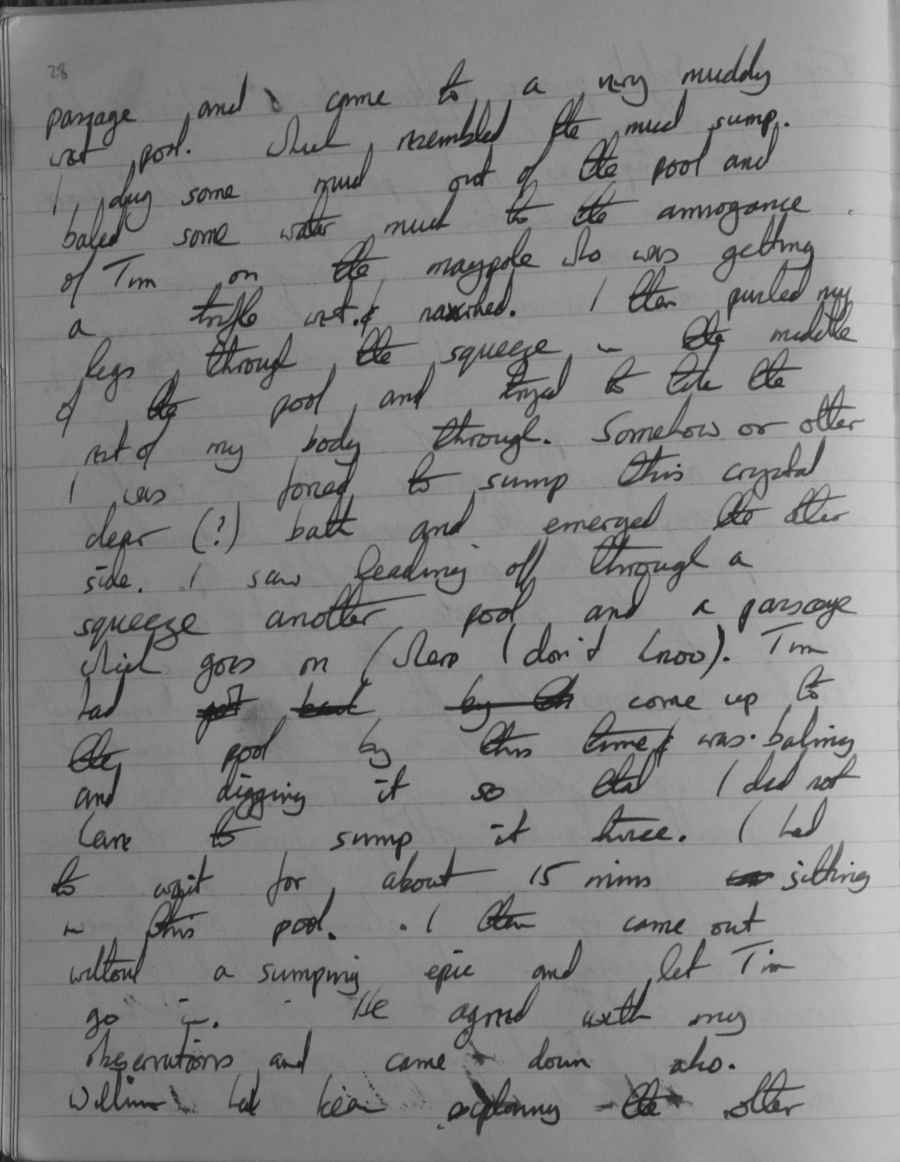 28
passage and came to a very muddy
wet pool. Which resembled the mud sump.
I dug some mud out of the pool and
baled some water much to the annoyance
of Tim on the maypole who was getting
a trifle wet &
. I then pushed my
legs through the squeeze in the middle
of the pool and tryed to the the
rest of my body through. Somehow or other
I was forced to sump this crystal
clear (?) bath and emerged the other
side. I saw leading off through a
squeeze another pool and a passage
which goes on (where I don't know). Tim
had come up to
the pool by this time & was baling
and digging it so that I did not
have to sump it twice. I had
to wait for about 15 mins sitting
in this pool. I then came out
without a sumping epic and let Tim
go in. He agreed with my
observations and came down also.
William had been exploring the other